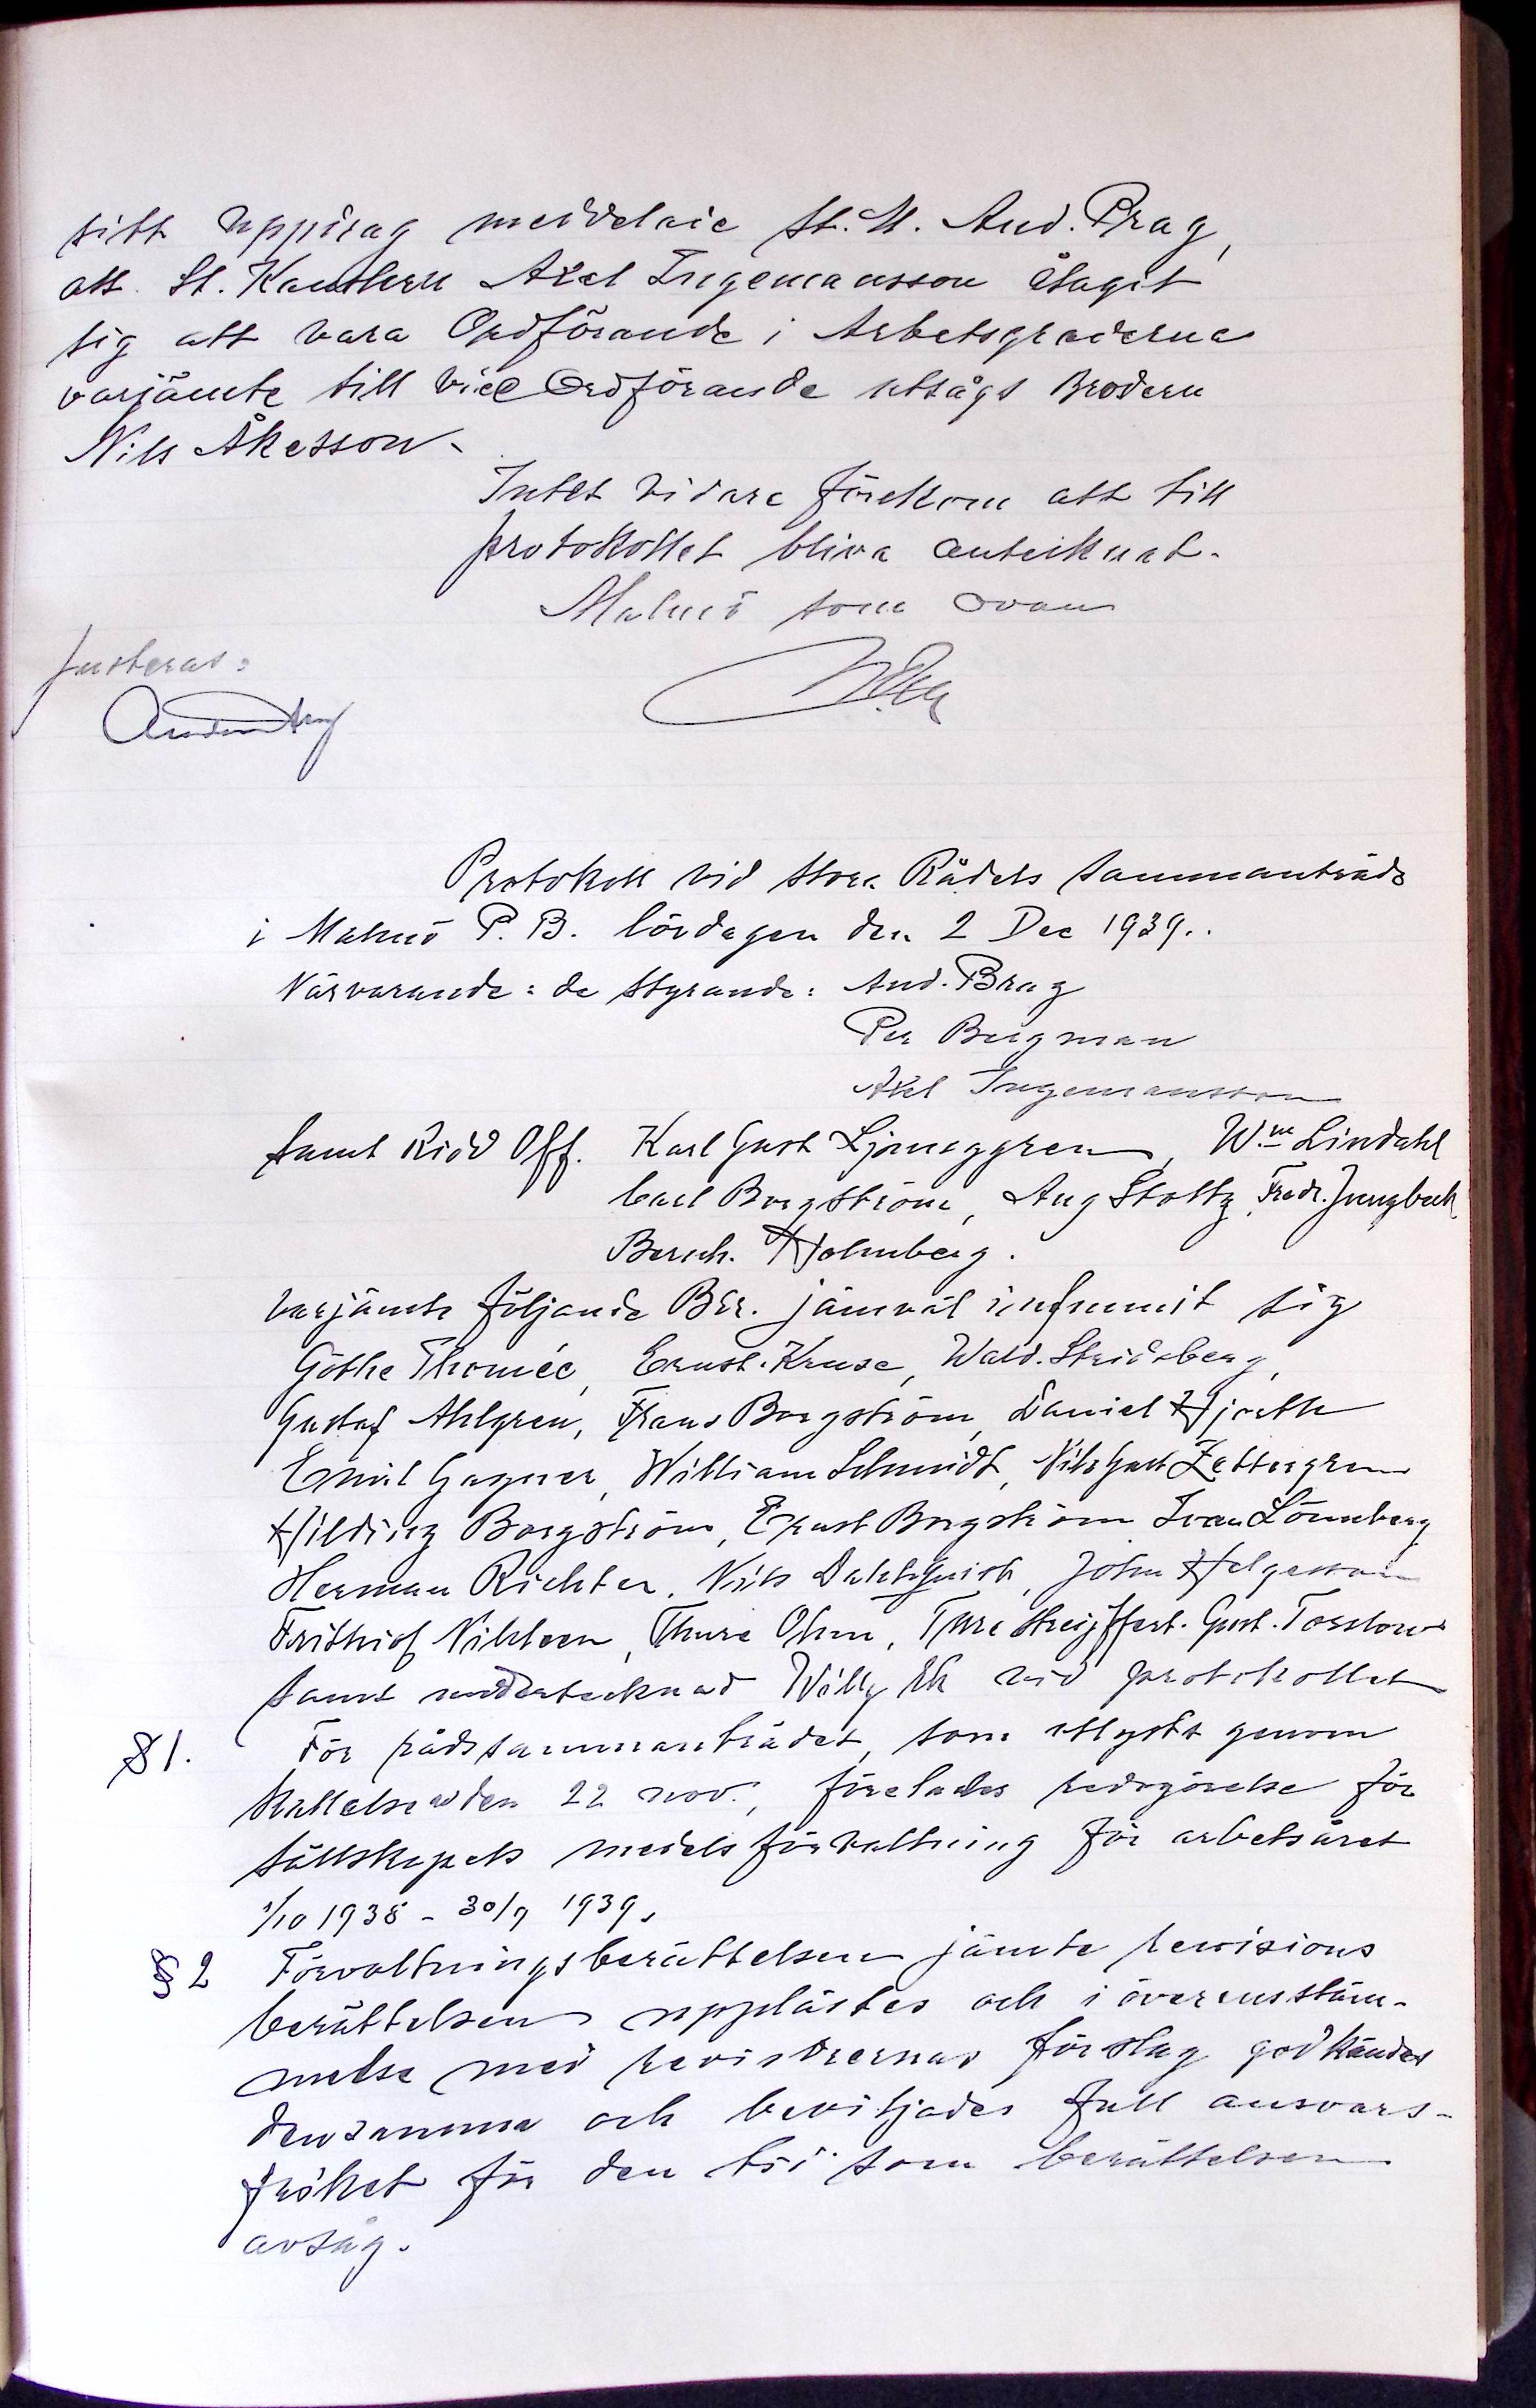 sitt uppdrag meddelade St. M. And. Brag,
att St. Kansleren Axel Ingemansson åtagit
sig att vara Ordförande i Arbetsgraderna
varjämte till vice Ordförande utsågs Brodern
Nils Åkesson.
Intet vidare förekom att till
protokollet bliva antecknat.
Malmö som ovan
Justeras:
Protokoll vid Stora Rådets sammanträde
i Malmö P. B. lördagen den 2 Dec 1939.
Närvarande: de styrande: And. Brag
Per Bergman
Axel Ingemansson
samt Off. Karl Gust Ljunggren, Wm Lindahl
Carl Borgström, Aug Stoltz, Fredr. Jungbeck
Bernh. Holmberg.
varjämte följande Bdr. jämväl infunnit sig
Göthe Thomée, Ernst Kruse, Wald. Stridsberg,
Gustaf Ahlgren, Frans Borgström, Daniel Hjorth
Emil Gagner, William Schmidt, Nils Gust Zettergren
Hilding Borgström, Ernst Borgström Ivan Lönnberg
Herman Richter, Nils Dahlquist, John Helgesson
Frithiof Nihleen, Thure Ohm, Ture Streijffert. Gust. Torslow
samt undertecknad Willy Ek vid protokollet
§ 1. För rådssammanträdet, som utlysts genom
kallelse den 22 nov., förelades redogörelse för
sällskapets medelsförvaltning för arbetsåret
1/10 1938 - 30/9 1939.
§ 2 Förvaltningsberättelsen jämte revisions
berättelsen upplästes och i överensstäm-
melse med revisorernas förslag godkändes
densamma och beviljades full ansvars-
frihet för den tid som berättelsen
avsåg.